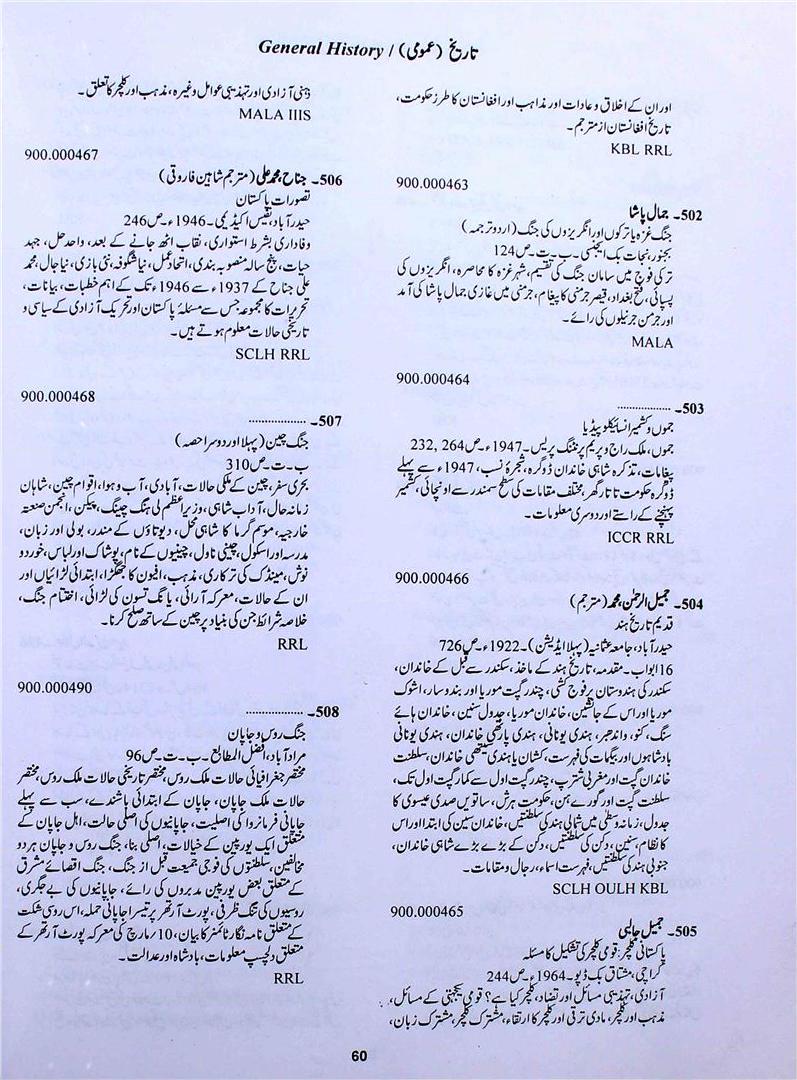 تاریخ (عمومی) / General History
اور ان کے اخلاق و عادات اور مذاہب اور افغانستان کا طرز حکومت،
تاریخ افغانستان از مترجم۔
KBL RRL
900.000463
502۔ جمال پاشا
جنگ غزہ یا ترکوں اور انگریزوں کی جنگ (اردو ترجمہ)
بجنور، نجات بک ایجنسی۔ ب۔ت۔ ص124
ترکی فوج میں سامان جنگ کی تقسیم، شہر غزہ کا محاصرہ، انگریزوں کی
پسپائی، فتح بغداد، قیصر جرمنی کا پیغام، جرمنی میں غازی جمال پاشا کی آمد
اور جرمن جرنیلوں کی رائے۔
MALA
900.000464
503۔ ..................
جموں و کشمیر انسائیکلوپیڈیا
جموں، ملک راج و پریم پرنٹنگ پریس۔ 1947ء۔ ص264 ,232
پیغامات، تذکرہ شاہی خاندان ڈوگرہ، شجرۂ نسب، 1947ء سے پہلے
ڈوگرہ حکومت تا تارگھر، مختلف مقامات کی سطح سمندر سے اونچائی، کشمیر
پہنچنے کے راستے اور دوسری معلومات۔
ICCR RRL
900.000466
504۔ جمیل الرحمٰن، محمد (مترجم)
قدیم تاریخ ہند
حیدرآباد، جامعہ عثمانیہ (پہلا ایڈیشن)۔ 1922ء۔ ص726
16 ابواب۔ مقدمہ، تاریخ ہند کے ماخذ، سکندر سے قبل کے خاندان،
سکندر کی ہندوستان پر فوج کشی، چندر گپت موریا اور بندوسار، اشوک
موریا اور اس کے جانشین، خاندان موریا، جدول سنین، خاندان ہائے
سنگ، کنو، واندھر، ہندی یونانی، ہندی پارتھی خاندان، ہندی یونانی
بادشاہوں اور بیگمات کی فہرست، کشان یا ہندی سیتھی خاندان، سلطنت
خاندان گپت اور مغربی شترپ، چندر گپت اول سے کمار گپت اول تک،
سلطنت گپت اور گورے ہن، حکومت ہرش، ساتویں صدی عیسوی کا
جدول، زمانہ وسطیٰ میں شمالی ہند کی سلطنتیں، خاندان سین کی ابتدا اور اس
کا نظام، سنین، دکن کی سلطنتیں، دکن کے بڑے بڑے شاہی خاندان،
جنوبی ہند کی سلطنتیں، فہرست اسماء، رجال و مقامات۔
SCLH OULH KBL
900.000465
505۔ جمیل جالبی
پاکستانی کلچر: قومی کلچر کی تشکیل کا مسئلہ
کراچی، مشتاق بک ڈپو۔ 1964ء۔ ص244
آزادی، تہذیبی مسائل اور تضاد، کلچر کیا ہے؟ قومی یکجہتی کے مسائل،
مذہب اور کلچر، مادی ترقی اور کلچر کا ارتقاء، مشترک کلچر، مشترک زبان،
ذہنی آزادی اور تہذیبی عوامل وغیرہ، مذہب اور کلچر کا تعلق۔
MALA IIIS
900.000467
506۔ جناح، محمد علی (مترجم شاہین فاروقی)
تصورات پاکستان
حیدرآباد، نفیس اکیڈیمی۔ 1946ء۔ ص246
وفاداری بشرط استواری، نقاب اٹھ جانے کے بعد، واحد حل، جہد
حیات، پنج سالہ منصوبہ بندی، اتحاد عمل، نیا شگوفہ، نئی بازی، نیا جال، محمد
علی جناح کے 1937ء سے 1946ء تک کے اہم خطبات، بیانات،
تحریرات کا مجموعہ جس سے مسئلۂ پاکستان اور تحریک آزادی کے سیاسی و
تاریخی حالات معلوم ہوتے ہیں۔
SCLH RRL
900.000468
507۔ ..................
جنگ چین (پہلا اور دوسرا حصہ)
ب۔ت۔ ص310
بحری سفر، چین کے ملکی حالات، آبادی، آب و ہوا، اقوام چین، شاہان
زمانہ حال، آداب شاہی، وزیر اعظم لی ہنگ چینگ، پیکن، انجمن صنعتہ
خارجیہ، موسم گرما کا شاہی محل، دیوتاؤں کے مندر، بولی اور زبان،
مدرسہ اور اسکول، چینی ناول، چینیوں کے نام، پوشاک اور لباس، خورد و
نوش، مینڈک کی ترکاری، مذہب، افیون کا جھگڑا، ابتدائی لڑائیاں اور
ان کے حالات، معرکہ آرائی، یانگ تسون کی لڑائی، اختتام جنگ،
خلاصہ شرائط جن کی بنیاد پر چین کے ساتھ صلح کرنا۔
RRL
900.000490
508۔ ..................
جنگ روس و جاپان
مرادآباد، افضل المطابع۔ ب۔ت۔ ص96
مختصر جغرافیائی حالات ملک روس، مختصر تاریخی حالات ملک روس، مختصر
حالات ملک جاپان، جاپان کے ابتدائی باشندے، سب سے پہلے
جاپانی فرمانروا کی اصلیت، جاپانیوں کی اصلی حالت، اہل جاپان کے
متعلق ایک یورپین کے خیالات، اصلی بنا، جنگ روس و جاپان ہر دو
مخالفین، سلطنتوں کی فوجی جمعیت قبل از جنگ، جنگ اقصائے مشرق
کے متعلق بعض یورپین مدبروں کی رائے، جاپانیوں کی بے جگری،
روسیوں کی تنگ ظرفی، پورٹ آرتھر پر تیسرا جاپانی حملہ، اس روسی شکست
کے متعلق نامہ نگار ٹائمنر کا بیان، 10/مارچ کی معرکہ پورٹ آرتھر کے
متعلق دلچسپ معلومات، بادشاہ اور عدالت۔
RRL
60